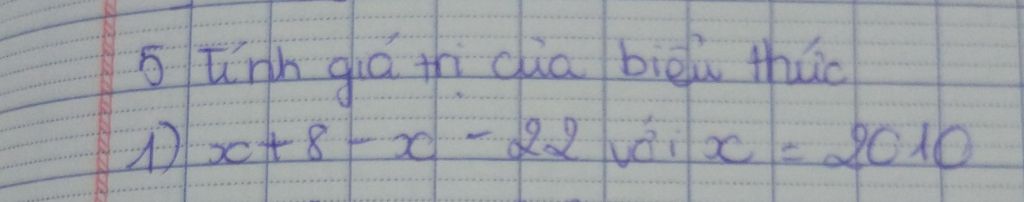 5 Tính giá trị của biểu thức
1) x + 8 - x - 22 với x = 2010